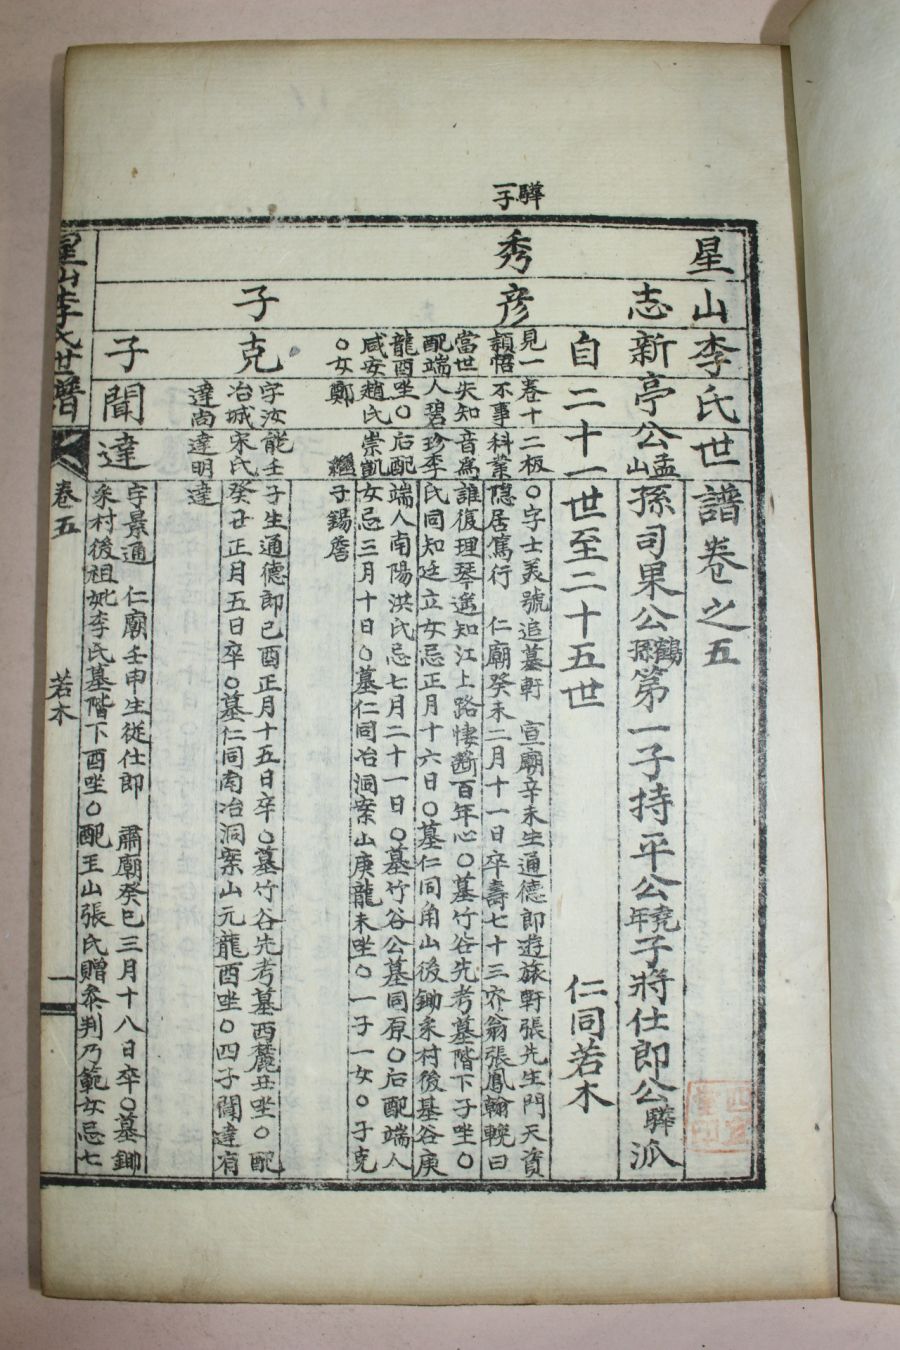 驊一子
星山李氏世譜卷之五
志新亭公孟山孫司果公鶴孫第一子持平公堯年子將仕郎公驊派
自二十一世至二十五世 仁同若木
秀彥
見一卷十二板○字士美號追墓軒 宣廟辛未生通德郎遊旅軒張先生門天資
穎悟不事科業隱居篤行 仁廟癸未二月十一日卒壽七十三齐翁張鳳翰輓曰
當世失知音爲誰復理琴遙知江上路悽斷百年心○墓竹谷先考墓階下子坐○
配端人碧珍李氏同知廷立女忌正月十六日○墓仁同角山後鋤禾村後基谷庚
龍酉坐○后配端人南陽洪氏忌七月二十一日○墓竹谷公墓同原○后配端人
咸安趙氏崇凱女忌三月十日○墓仁同冶洞案山庚龍未坐○一子一女○子克
○女鄭繼子錫詹
子克
字汝能壬子生通德郎己酉正月十五日卒○墓竹谷先考墓西麓丑坐○配
冶城宋氏癸丑正月五日卒○墓仁同南冶洞案山元龍酉坐○四子聞達有
達尚達明達
子聞達
字景通 仁廟壬申生從仕郎 肅廟癸巳三月十八日卒○墓鋤
禾村後祖妣李氏墓階下酉坐○配玉山張氏贈參判乃範女忌七
星山李氏世譜 卷五 若木 一